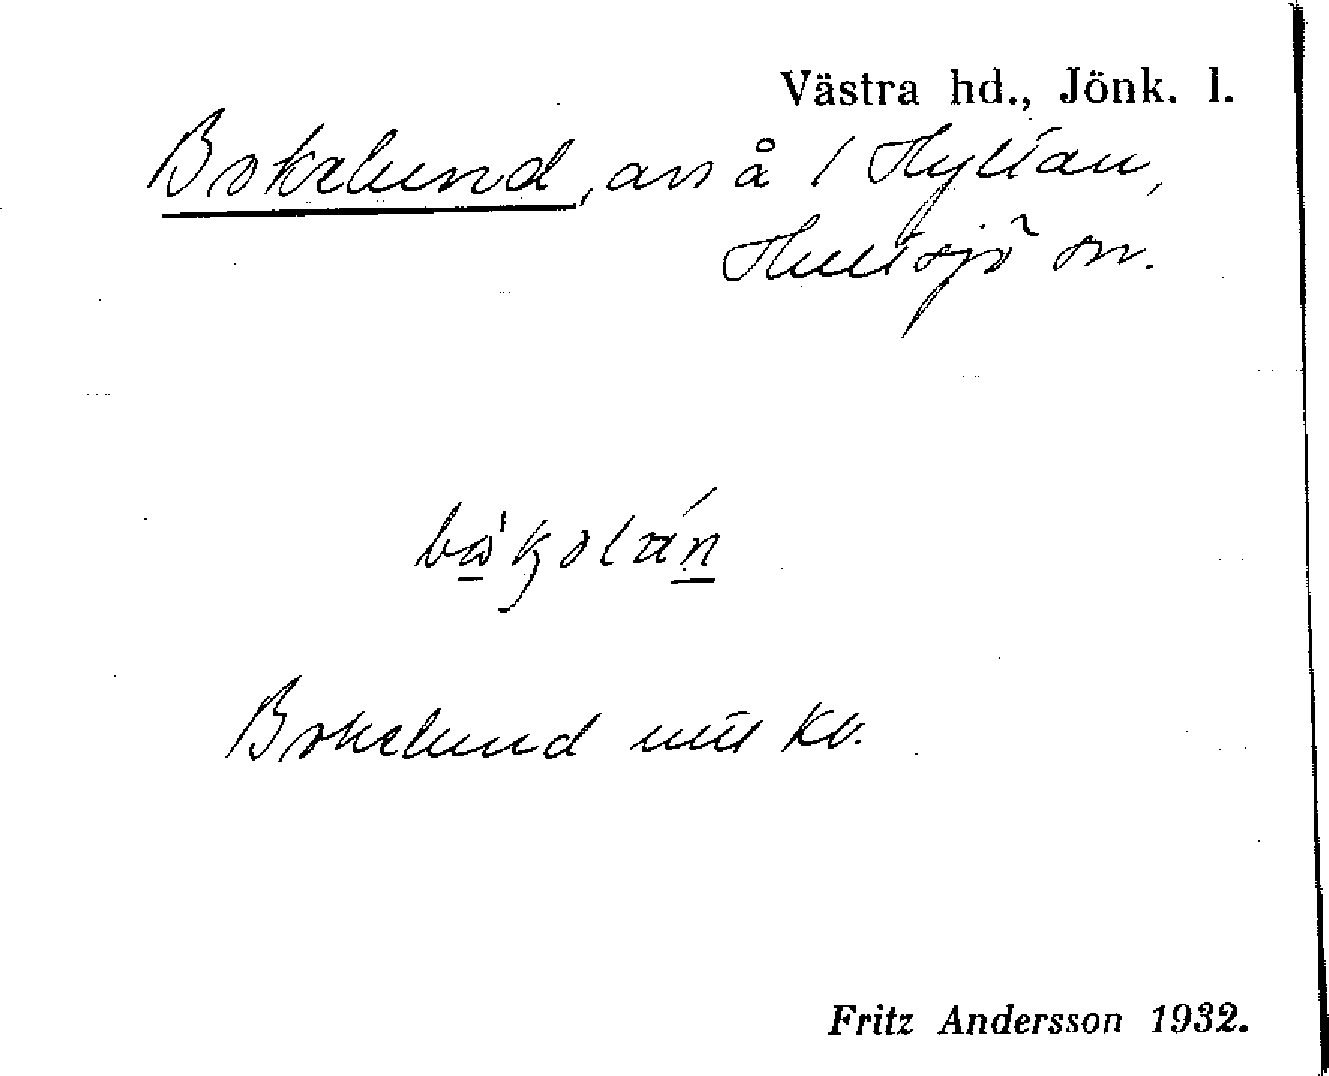 Västra hd., Jönk. l.
Bokelund, avs å 1 Hyltan,
Hultsjö sn.
Bokelund mtl Kv.
Fritz Andersson 1932.